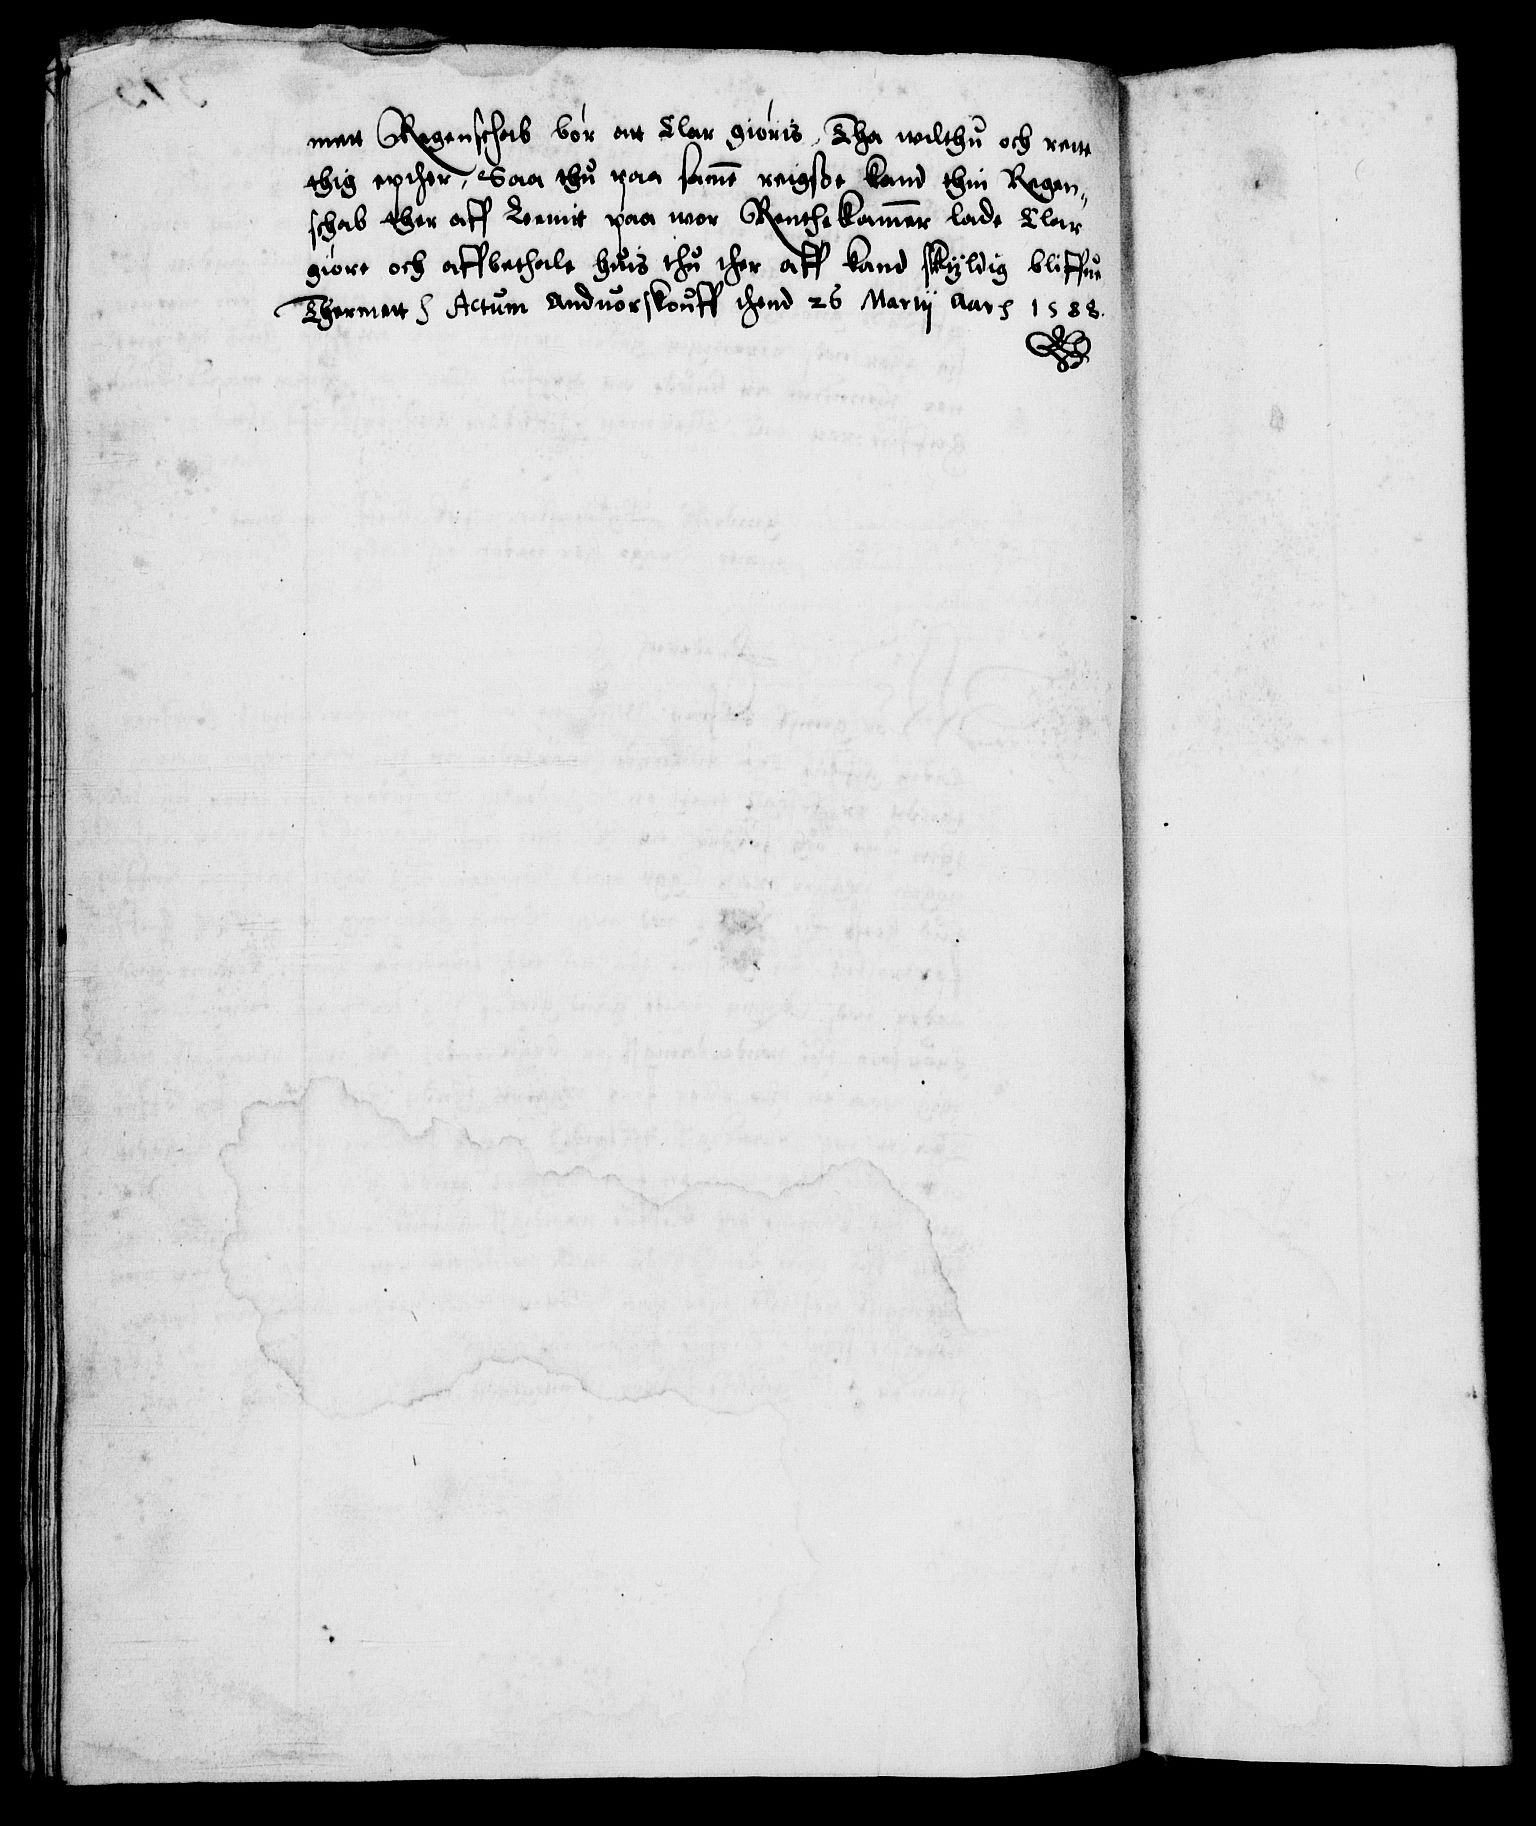 mett Regenschab bör att Clar giöris, Tha wilthu och rette
thig epther, Saa thu paa samē reigsse kand thin Regen„
schab ther aff Leemit paa wor Renthekamēr lade Clar
giöre och affbethale huis thu ther aff kand skyldig bliffue
Thermett ꝭ Actum Anduorskouff thend 26 Martij Aarꝭ 1588.